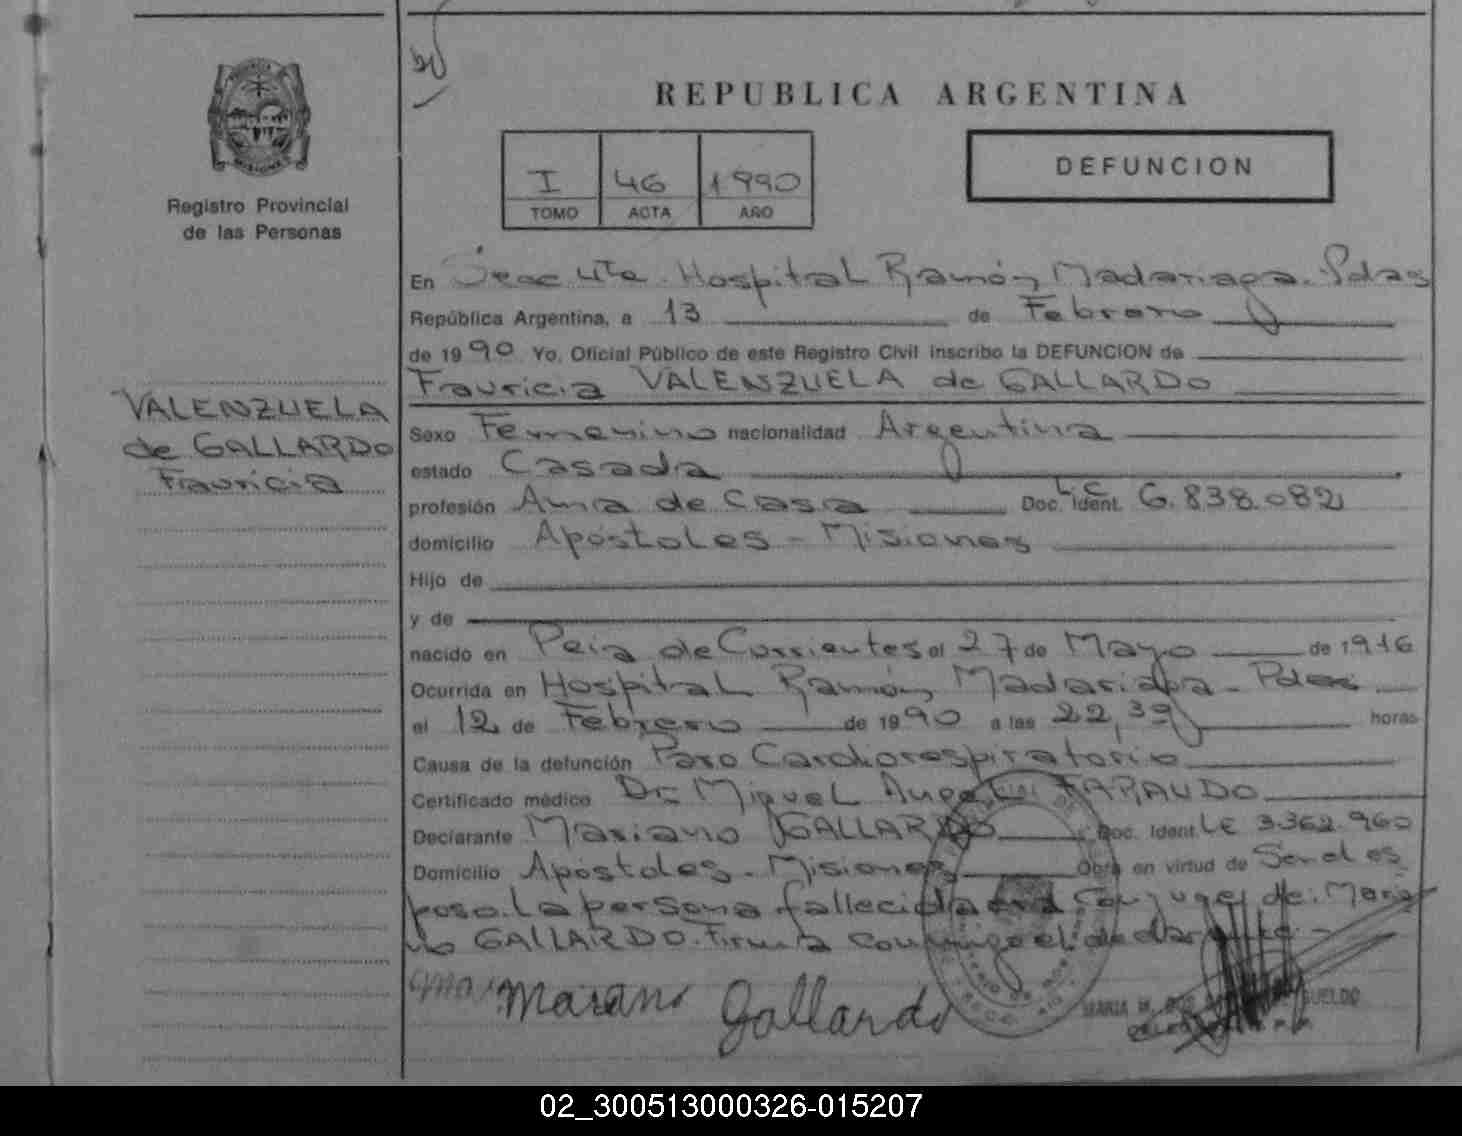 REPUBLICA ARGENTINA
PROVINCIA
MISIONES
Registro Provincial
de las Personas
I 46 1990
TOMO ACTA AÑO
DEFUNCION
En Secc 4ta. Hospital Ramón Madariaga. Pdas
República Argentina, a 13 de Febrero
de 1990 Yo, Oficial Público de este Registro Civil inscribo la DEFUNCION de
Fauricia VALENZUELA de GALLARDO
VALENZUELA
de GALLARDO
Fauricia
Sexo Femenino nacionalidad Argentina
estado Casada
profesión Ama de Casa Doc. Ident. L.C 6.838.082
domicilio Apóstoles - Misiones
Hijo de
y de
nacido en Pcia de Corrientes el 27 de Mayo de 1916
Ocurrida en Hospital Ramón Madariaga - Pdas
el 12 de Febrero de 1990 a las 22,39 horas
Causa de la defunción Paro Cardiorespiratorio
Certificado médico Dr. Miguel Angel FARAUDO
Declarante Mariano GALLARDO Doc. Ident. LE 3.362.960
Domicilio Apóstoles - Misiones Obra en virtud de Ser el es
poso. La persona fallecida era conyuge de: Maria
no GALLARDO. Firma conmigo el declarante.-
Mariano Gallardo
MARIA M. DOS SUELDO
02_300513000326-015207